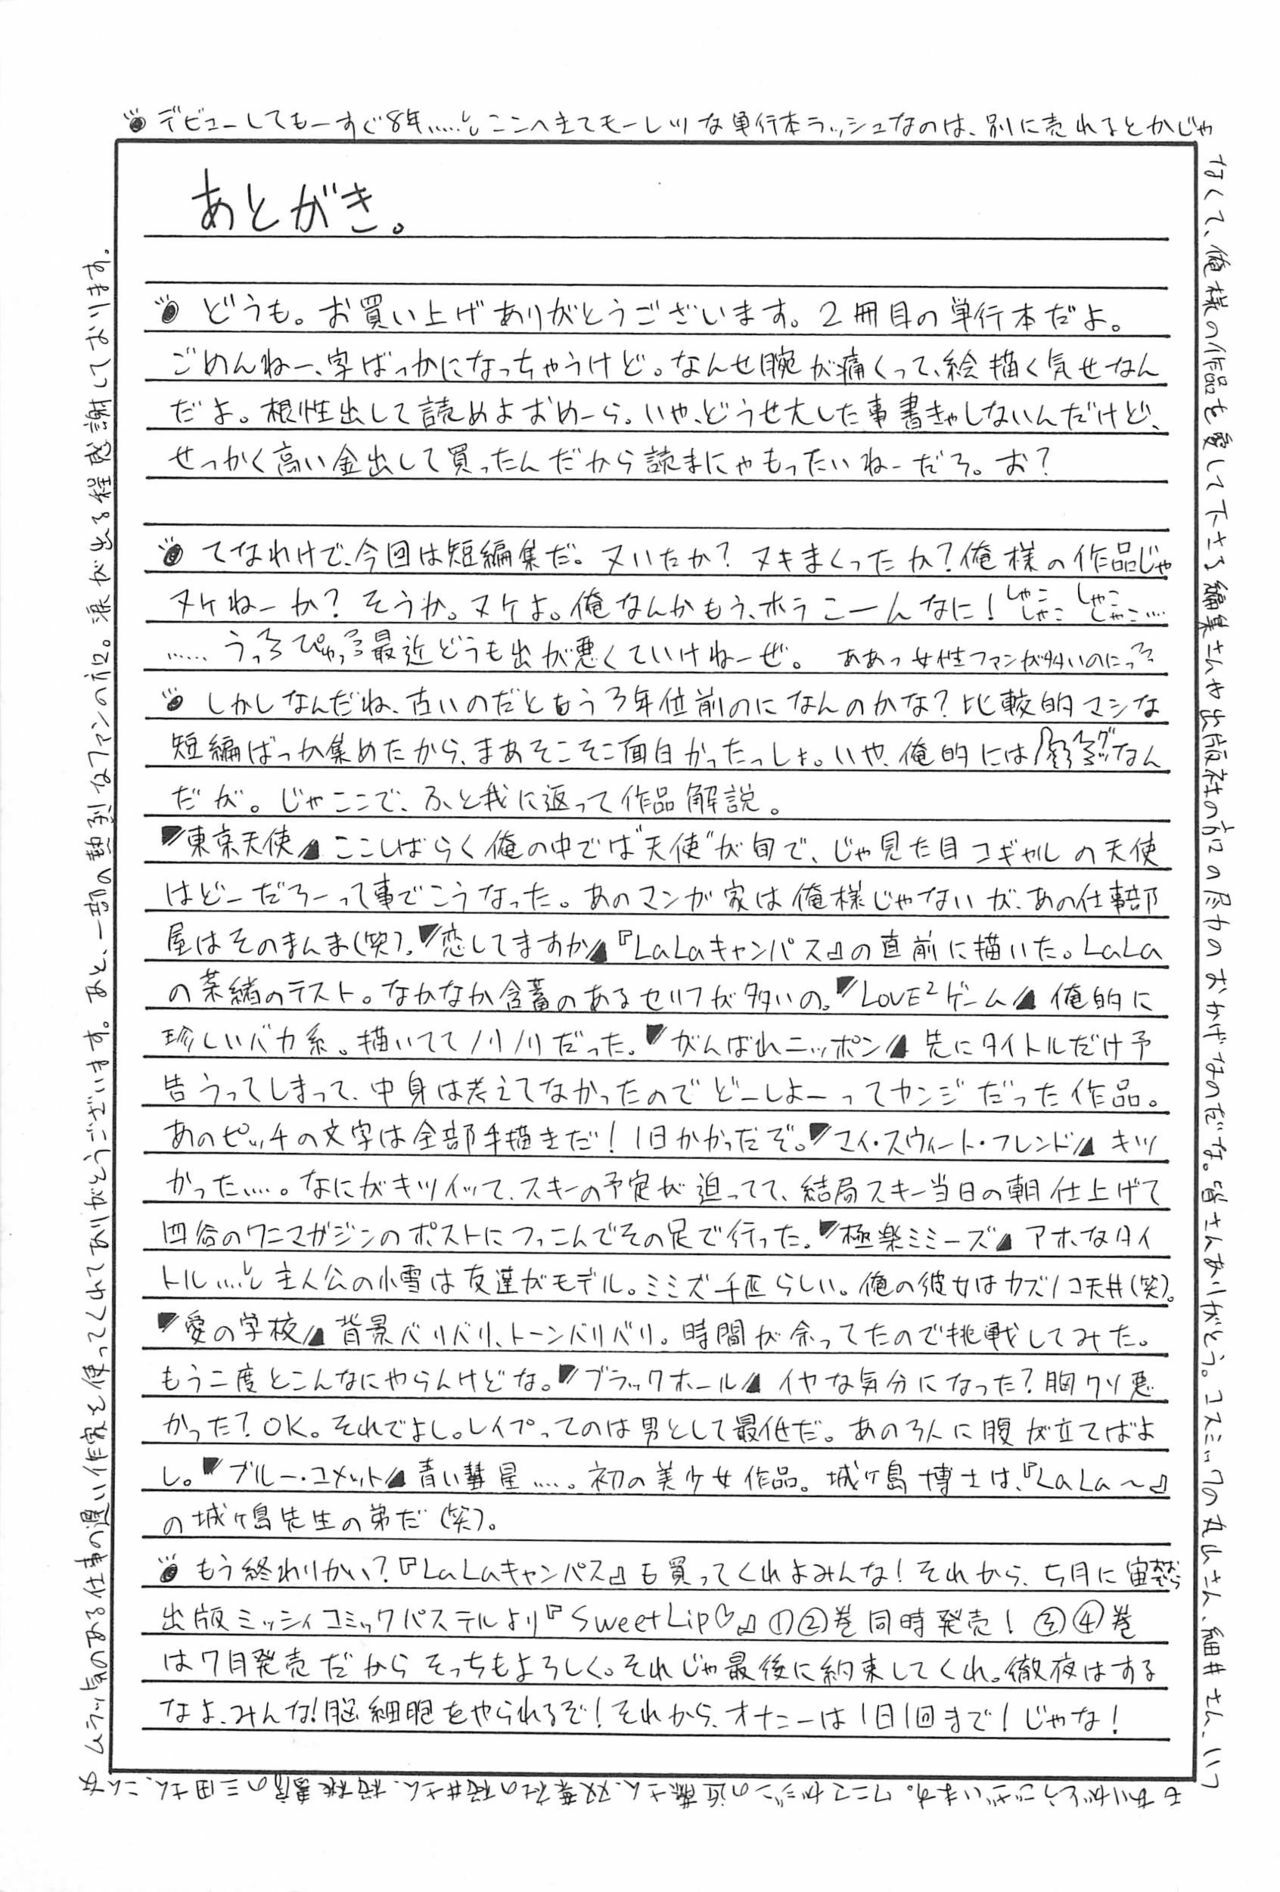 デビューしてもーすぐ8年……。ここへきてモーレツな単行本ラッシュなのは、別に売れるとかじゃ
なくて、俺様の作品を愛して下さる編集さんや出版社の方の尽力のおかげなのだな。皆さんありがとう。コスミックの丸山さん、細井さん、いつ
もありがとうございます。ワニマガジンの近藤さん、双葉社の桜井さん、桃園書房の三田さん、こんな
ムラッ気のある仕事の遅い作家を使ってくれてありがとうございます。あと、一部の熱烈なファンの方に。涙が出る程感謝しております。
あとがき。
どうも。お買い上げありがとうございます。2冊目の単行本だよ。
ごめんねー、字ばっかになっちゃうけど。なんせ腕が痛くって、絵描く気せなん
だよ。根性出して読めよおめーら。いや、どうせ大した事書きゃしないんだけど、
せっかく高い金出して買ったんだから読まにゃもったいねーだろ。お?
てなわけで、今回は短編集だ。ヌいたか?ヌキまくったか?俺様の作品じゃ
ヌケねーか?そうか。ヌケよ。俺なんかもう、ホラこーんなに!しゃこしゃこしゃこしゃこ…
……うっぴゅっ最近どうも出が悪くていけねーぜ。ああっ女性ファンが多いのにっ
しかしなんだね、古いのだともう3年位前のになんのかな?比較的マシな
短編ばっか集めたから、まあそこそこ面白かったっしょ。いや、俺的には なん
だが。じゃここで、ふと我に返って作品解説。
東京天使 ここしばらく俺の中では"天使"が旬で、じゃ見た目コギャルの天使
はどーだろーって事でこうなった。あのマンガ家は俺様じゃないが、あの仕事部
屋はそのまんま(笑)。恋してますか『LaLaキャンパス』の直前に描いた。LaLa
の茶緒のテスト。なかなか含蓄のあるセリフが多いの。LOVE²ゲーム 俺的に
珍しいバカ系。描いててノリノリだった。がんばれニッポン 先にタイトルだけ予
告うってしまって、中身は考えてなかったのでどーしよーってカンジだった作品。
あのピッチの文字は全部手描きだ!1日かかったぞ。マイ・スウィート・フレンド キツ
かった…。なにがキツイって、スキーの予定が迫ってて、結局スキー当日の朝仕上げて
四谷のワニマガジンのポストにつっこんでその足で行った。極楽ミミーズ アホなタイ
トル…。主人公の小雪は友達がモデル。ミミズ千匹らしい。俺の彼女はカズノコ天井(笑)。
愛の学校 背景バリバリ、トーンバリバリ。時間が余ってたので挑戦してみた。
もう二度とこんなにやらんけどな。ブラックホール イヤな気分になった?胸クソ悪
かった?OK。それでよし。レイプってのは男として最低だ。あの3人に腹が立てばよ
し。ブルー・コメット 青い彗星…。初の美少女作品。城ヶ島博士は、『LaLa〜』
の城ヶ島先生の弟だ(笑)。
もう終わりかい?『LaLaキャンパス』も買ってくれよみんな!それから、5月に宙おおぞら
出版ミッシィコミックパステルより『Sweet Lip♡』①②巻同時発売!③④巻
は7月発売だからそっちもよろしく。それじゃ最後に約束してくれ。徹夜はする
なよ、みんな!脳細胞をやられるぞ!それから、オナニーは1日1回まで!じゃな!